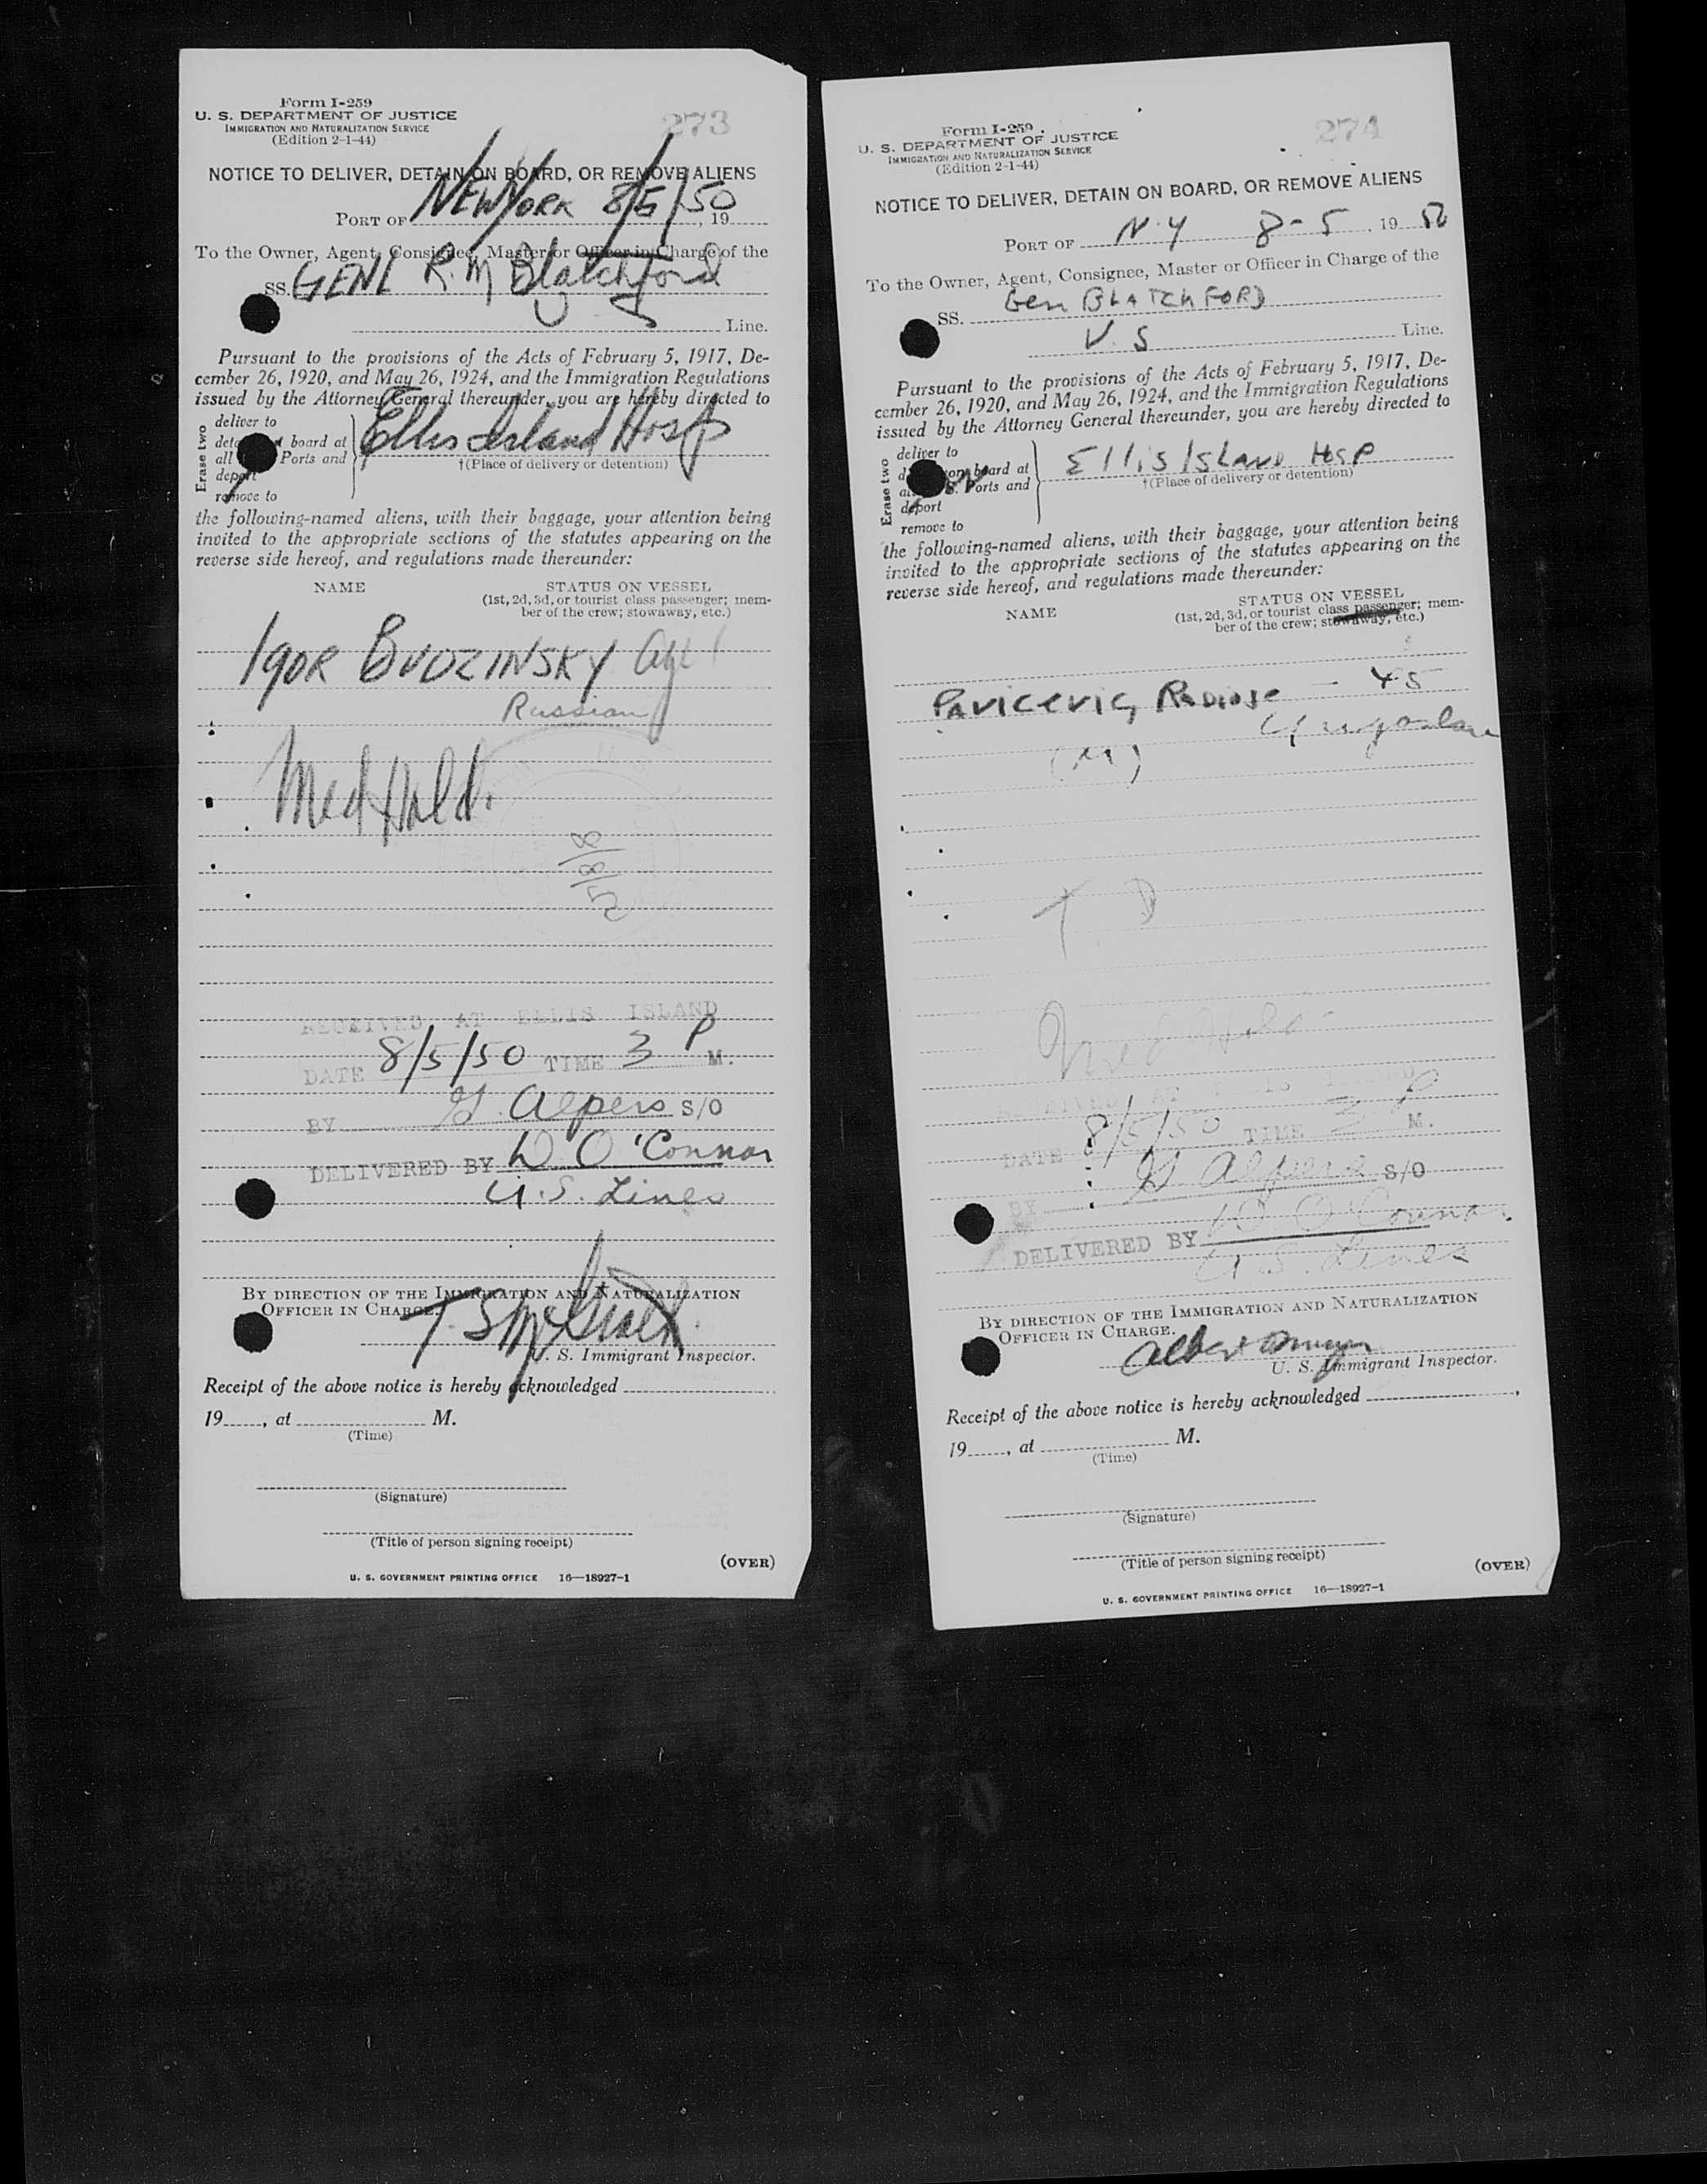 Form I-259
U. S. DEPARTMENT OF JUSTICE
IMMIGRATION AND NATURALIZATION SERVICE
(Edition 2-1-44)
273
NOTICE TO DELIVER, DETAIN ON BOARD, OR REMOVE ALIENS
PORT OF NEW YORK 8/5/50, 19
To the Owner, Agent, Consignee, Master or Officer in Charge of the
SS. GENL R. M Blatchford
Line.
Pursuant to the provisions of the Acts of February 5, 1917, De-
cember 26, 1920, and May 26, 1924, and the Immigration Regulations
issued by the Attorney General thereunder, you are hereby directed to
Erase two
deliver to
board at
all Ports and
deport
remove to
Ellis Island Hosp
†(Place of delivery or detention)
the following-named aliens, with their baggage, your attention being
invited to the appropriate sections of the statutes appearing on the
reverse side hereof, and regulations made thereunder:
NAME STATUS ON VESSEL
(1st, 2d, 3d, or tourist class passenger; mem-
ber of the crew; stowaway, etc.)
Igor BUDZINSKY age 1
Russian
Med Hold.
8/8/50
RECEIVED AT ELLIS ISLAND
DATE 8/5/50 TIME 3 P M.
BY G. Alpers S/O
DELIVERED BY D O'Connor
U.S. Lines
BY DIRECTION OF THE IMMIGRATION AND NATURALIZATION
OFFICER IN CHARGE.
T. S.
U. S. Immigrant Inspector.
Receipt of the above notice is hereby acknowledged
19, at M.
(Time)
(Signature)
(Title of person signing receipt)
(OVER)
U. S. GOVERNMENT PRINTING OFFICE 16—18927-1
Form I-259
U. S. DEPARTMENT OF JUSTICE
IMMIGRATION AND NATURALIZATION SERVICE
(Edition 2-1-44)
274
NOTICE TO DELIVER, DETAIN ON BOARD, OR REMOVE ALIENS
PORT OF N.Y 8-5, 19 50
To the Owner, Agent, Consignee, Master or Officer in Charge of the
SS. Gen BLATCHFORD
U.S Line.
Pursuant to the provisions of the Acts of February 5, 1917, De-
cember 26, 1920, and May 26, 1924, and the Immigration Regulations
issued by the Attorney General thereunder, you are hereby directed to
Erase two
deliver to
on board at
Ports and
deport
remove to
Ellis Island Hosp
†(Place of delivery or detention)
the following-named aliens, with their baggage, your attention being
invited to the appropriate sections of the statutes appearing on the
reverse side hereof, and regulations made thereunder:
NAME STATUS ON VESSEL
(1st, 2d, 3d, or tourist class passenger; mem-
ber of the crew; stowaway, etc.)
PAVICEVIC, - 45
(M)
T. D
Med Hold
RECEIVED AT ELLIS ISLAND
DATE 8/5/50 TIME 3 P M.
BY G. Alpers S/O
DELIVERED BY D O'Connor
U.S. Lines
BY DIRECTION OF THE IMMIGRATION AND NATURALIZATION
OFFICER IN CHARGE.
U. S. Immigrant Inspector.
Receipt of the above notice is hereby acknowledged
19, at M.
(Time)
(Signature)
(Title of person signing receipt)
(OVER)
U. S. GOVERNMENT PRINTING OFFICE 16—18927-1